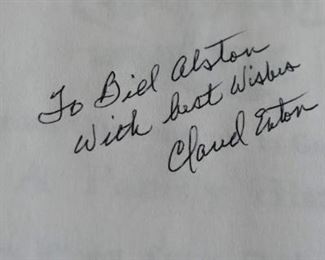 To Bill Alston
With best Wishes
Claud Eaton